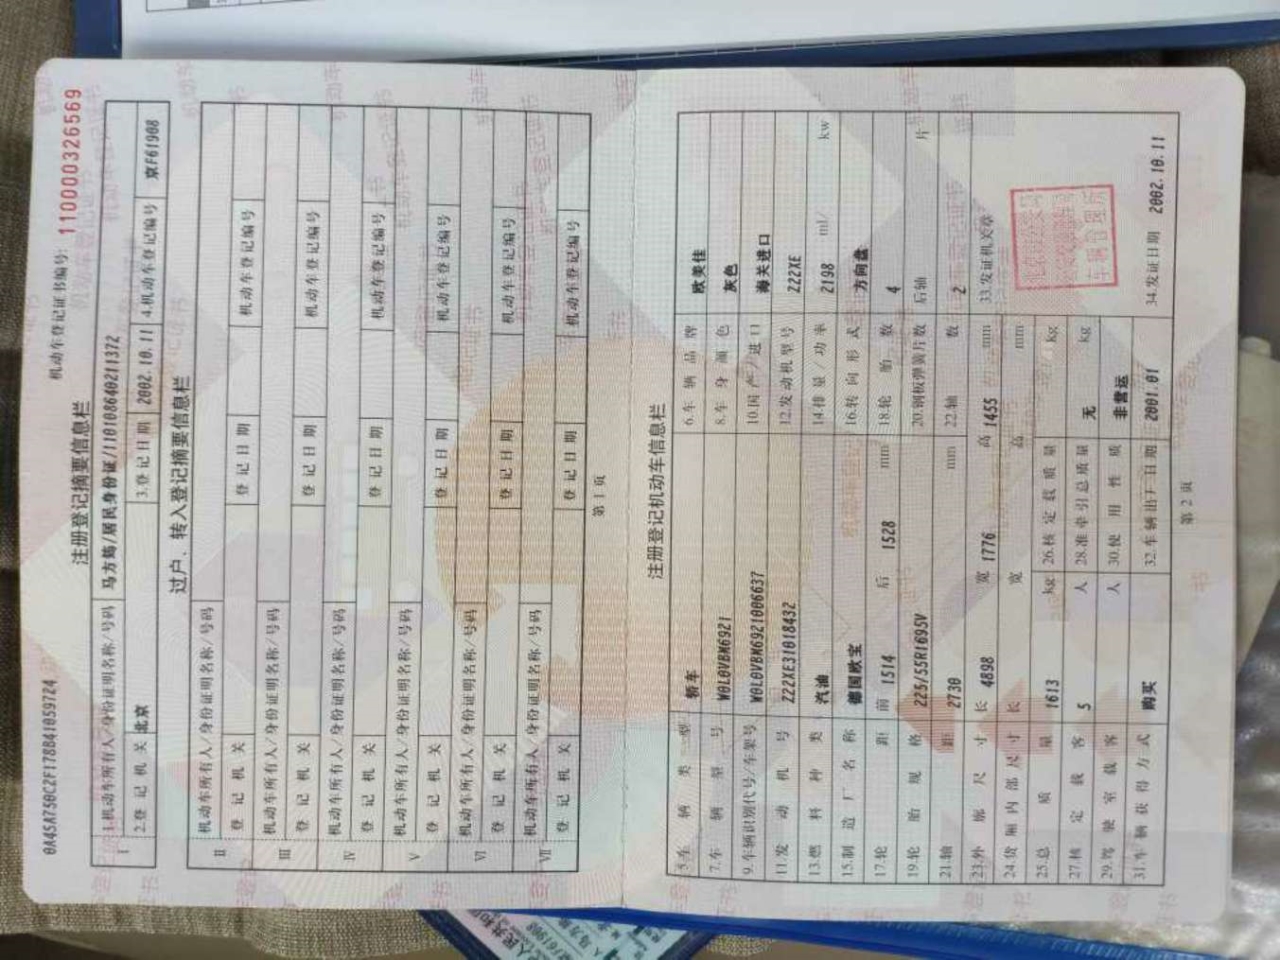 机动车登记证书编号: 110000326569
0A45A750C2F178841059724
注册登记摘要信息栏
I 1.机动车所有人/身份证明名称/号码 马方鹉/居民身份证/110108640211372
2.登记机关 北京 3.登记日期 2002.10.11 4.机动车登记编号 京F61908
过户、转入登记摘要信息栏
II 机动车所有人/身份证明名称/号码
登记机关 登记日期 机动车登记编号
III 机动车所有人/身份证明名称/号码
登记机关 登记日期 机动车登记编号
IV 机动车所有人/身份证明名称/号码
登记机关 登记日期 机动车登记编号
V 机动车所有人/身份证明名称/号码
登记机关 登记日期 机动车登记编号
VI 机动车所有人/身份证明名称/号码
登记机关 登记日期 机动车登记编号
VII 机动车所有人/身份证明名称/号码
登记机关 登记日期 机动车登记编号
第1页
注册登记机动车信息栏
5.车辆类型 轿车 6.车辆品牌 欧美佳
7.车辆型号 W0L0VBM6921 8.车身颜色 灰色
9.车辆识别代号/车架号 W0L0VBM6921006637 10.国产/进口 海关进口
11.发动机号 Z22XE31018432 12.发动机型号 Z22XE
13.燃料种类 汽油 14.排量/功率 2198 ml/ kw
15.制造厂名称 德国欧宝 16.转向形式 方向盘
17.轮距 前 1514 后 1528 mm 18.轮胎数 4
19.轮胎规格 225/55R1695V 20.钢板弹簧片数 后轴 片
21.轴距 2730 mm 22.轴数 2
23.外廓尺寸 长 4898 宽 1776 高 1455 mm 33.发证机关章
24.货厢内部尺寸 长 宽 高 mm
25.总质量 1613 kg 26.核定载质量 kg
27.核定载客 5 人 28.准牵引总质量 无 kg
29.驾驶室载客 人 30.使用性质 非营运
31.车辆获得方式 购买 32.车辆出厂日期 2001.01 34.发证日期 2002.10.11
第2页